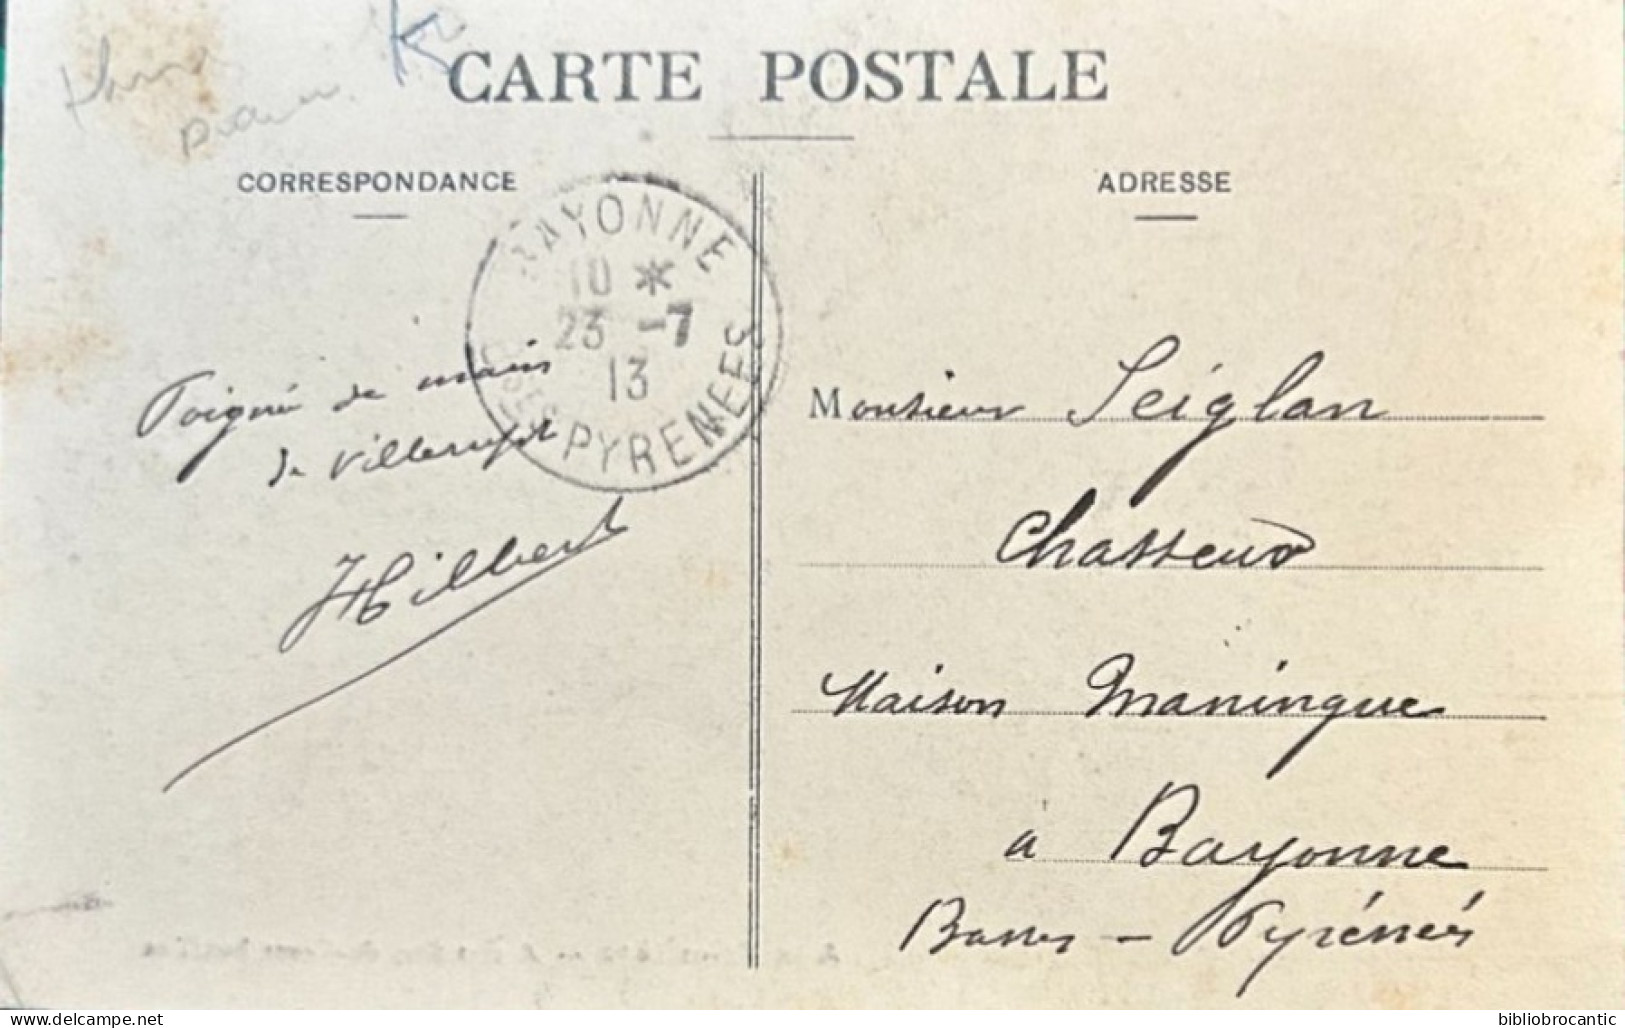 CARTE POSTALE
CORRESPONDANCE
ADRESSE
BAYONNE
10 *
23 -7
13
BSES PYRENEES
Poigné de mains
de Villerupt
Hilbert
Monsieur Seiglan
Chasseur
Maison Maningue
à Bayonne
Basses - Pyrénées
bibliobrocantic